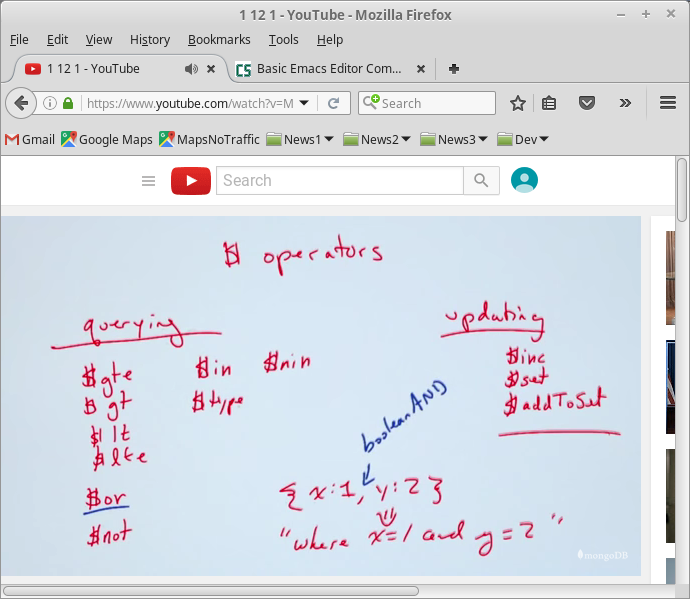 1 12 1 - YouTube - Mozilla Firefox
File Edit View History Bookmarks Tools Help
1 12 1 - YouTube
Basic Emacs Editor Com...
https://www.youtube.com/watch?v=M
Search
Gmail Google Maps MapsNoTraffic News1 News2 News3 Dev
Search
$ operators
querying
updating
$gte
$in
$nin
$inc
$gt
$type
$set
$lt
$addToSet
$lte
booleanAND
$or
{ x:1, y:2 }
$not
"where x=1 and y=2"
mongoDB